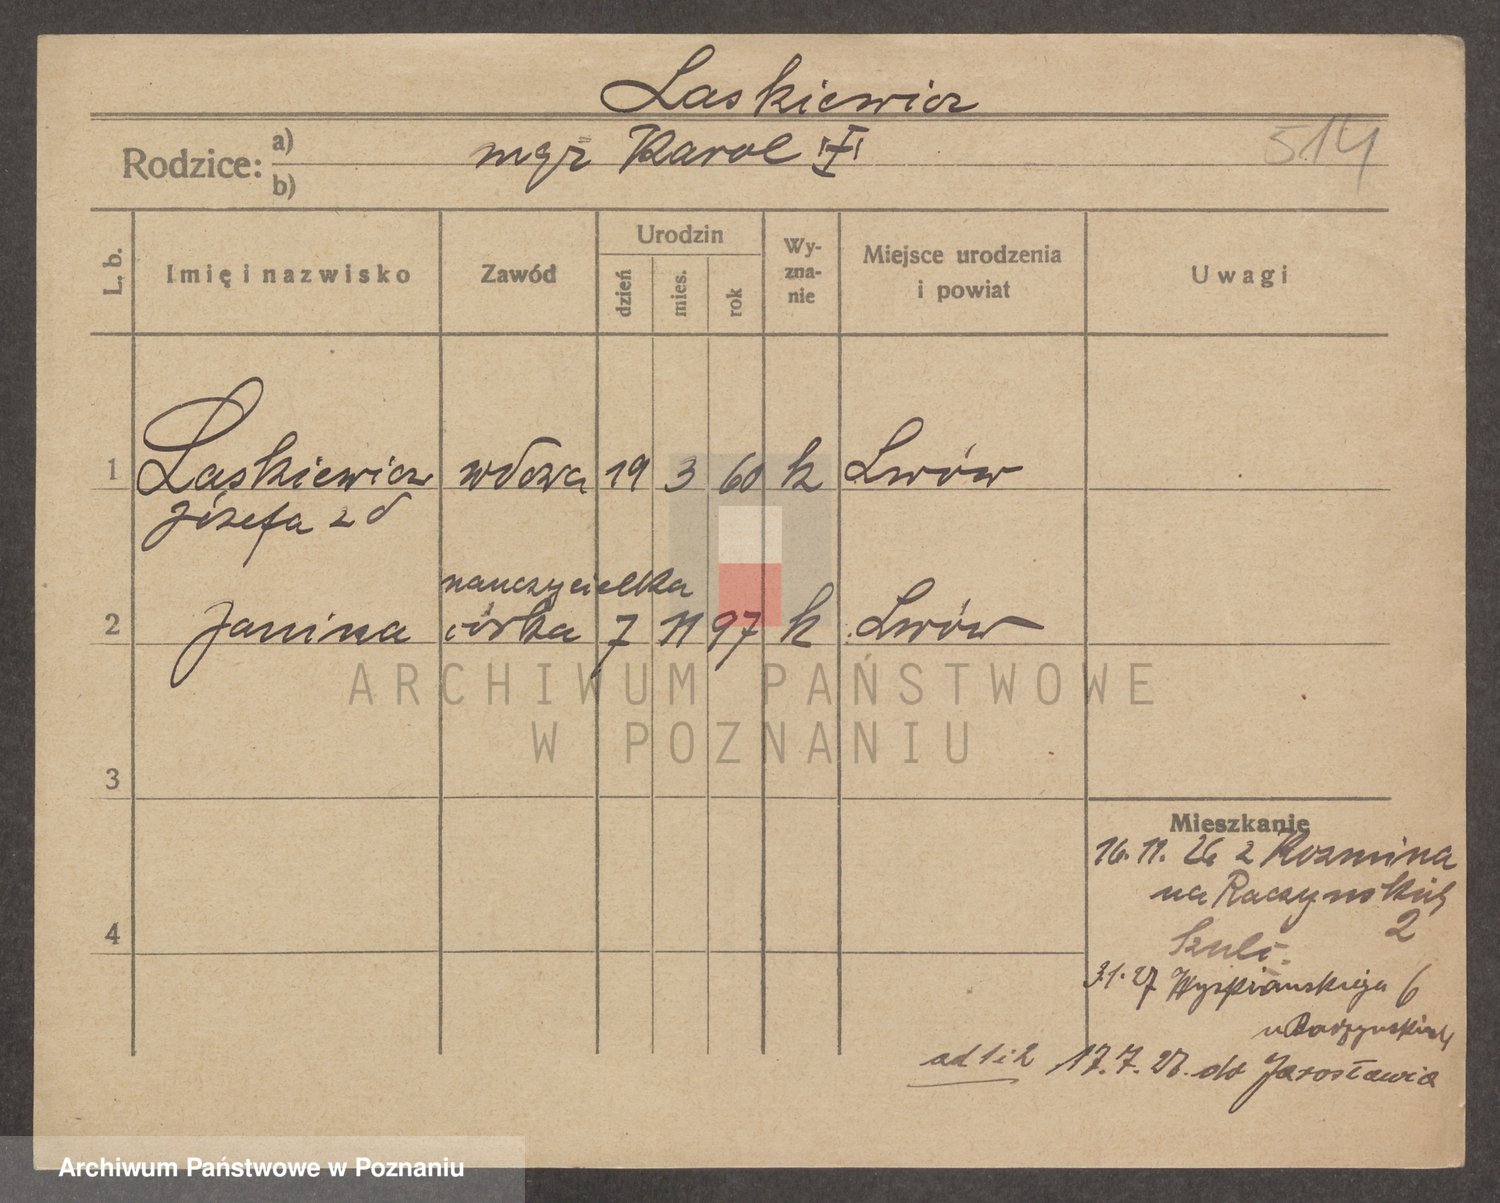 Laskiewicz
Rodzice: a) mgr Karol "I"
b)
514
L. b. Imię i nazwisko Zawód Urodzin dzień mies. rok Wy-zna-nie Miejsce urodzenia i powiat Uwagi
1 Laskiewicz wdowa 19 3 60 k Lwów
Józefa z d
nauczycielka
2 Janina córka 7 11 97 k Lwów
ARCHIWUM PAŃSTWOWE
W POZNANIU
3
Mieszkanie
16. 11. 26 z Kozmina
na Raczynskich
2
4
Szulc
3.1.27 Wyspiańskiego 6
u Radzynskich
ad 1 i 2 17.7.27. do Jarosławia
Archiwum Państwowe w Poznaniu